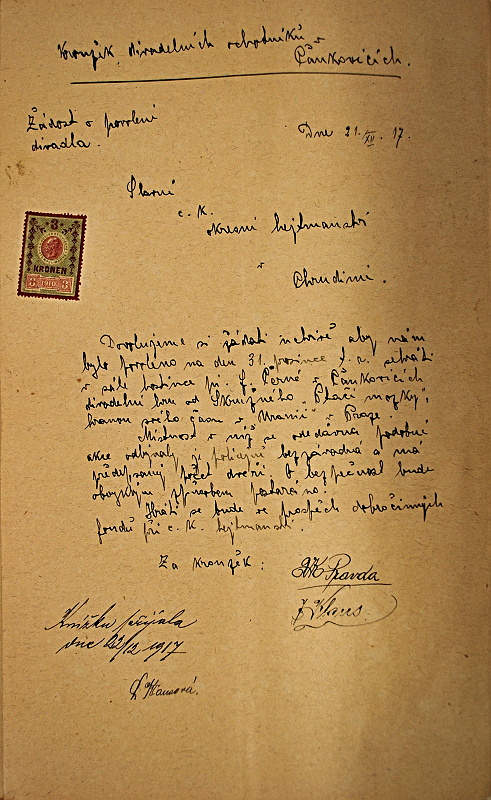 Kroužek divadelních ochotníků v
Pánkovicích.
Žádost o povolení
divadla.
Dne 21. XII. 17.
Slavné
c. k.
okresní hejtmanství
v
Chrudimi.
3
KRONEN
3 1910 3
Dovolujeme si žádati uctivě aby nám
bylo povoleno na den 31. prosince t. r. sehráti
v sále hostince p. J. Černé v Pánkovicích
divadelní hru od Skružného "Ptačí mozky",
hranou svého času v "Uranii" v Praze.
Místnost v níž se odedávna podobné
akce odbývaly je policejně bezzávadná a má
předepsaný počet dveří. O bezpečnost bude
obvyklým způsobem postaráno.
Hráti se bude ve prospěch dobročinných
fondů při c. k. hejtmanství.
Za kroužek:
Pravda
Klaus.
Knížku přijala
dne 22/12 1917
Klausová.